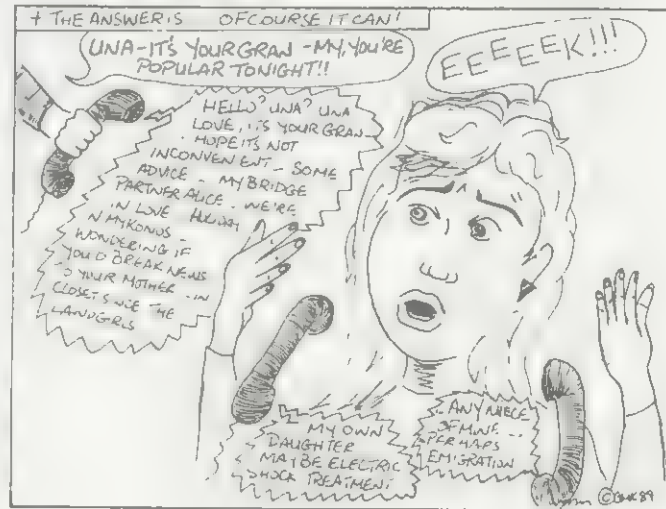 + THE ANSWER IS OF COURSE IT CAN!
UNA-IT'S YOUR GRAN - MY, YOU'RE
POPULAR TONIGHT!!
EEEEEEK!!!
HELLO? UNA? UNA
LOVE, IT'S YOUR GRAN -
HOPE IT'S NOT
INCONVENIENT - SOME
ADVICE - MY BRIDGE
PARTNER ALICE - WE'RE
IN LOVE HOLIDAY
N MYKONOS -
WONDERING IF
YOU'D BREAK NEWS
TO YOUR MOTHER - IN
CLOSET SINCE THE
LANDGIRLS
MY OWN
DAUGHTER
MAYBE ELECTRIC
SHOCK TREATMENT
ANY NIECE
OF MINE ...
PERHAPS
EMIGRATION
©GMK 89